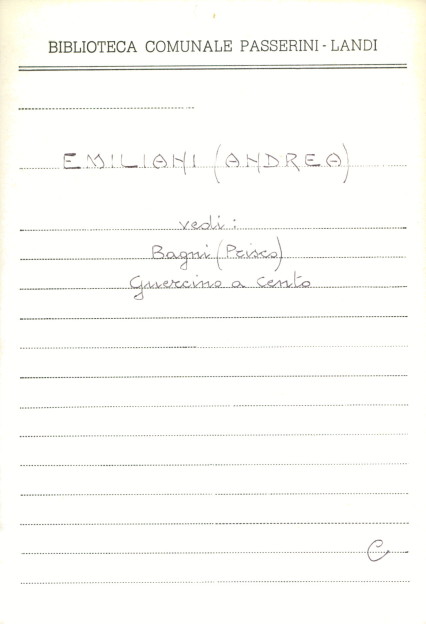 BIBLIOTECA COMUNALE PASSERINI - LANDI
EMILIANI (ANDREA)
vedi:
Bagni (Prisco)
Guercino a Cento
C